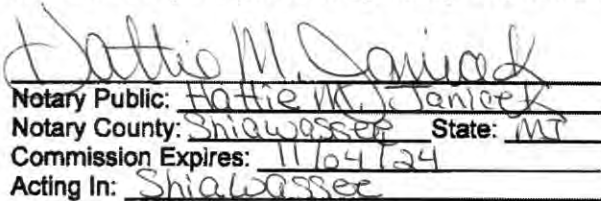 Hattie M. Janicek
Notary Public: Hattie M. Janicek
Notary County: Shiawassee State: MI
Commission Expires: 11/04/24
Acting In: Shiawassee